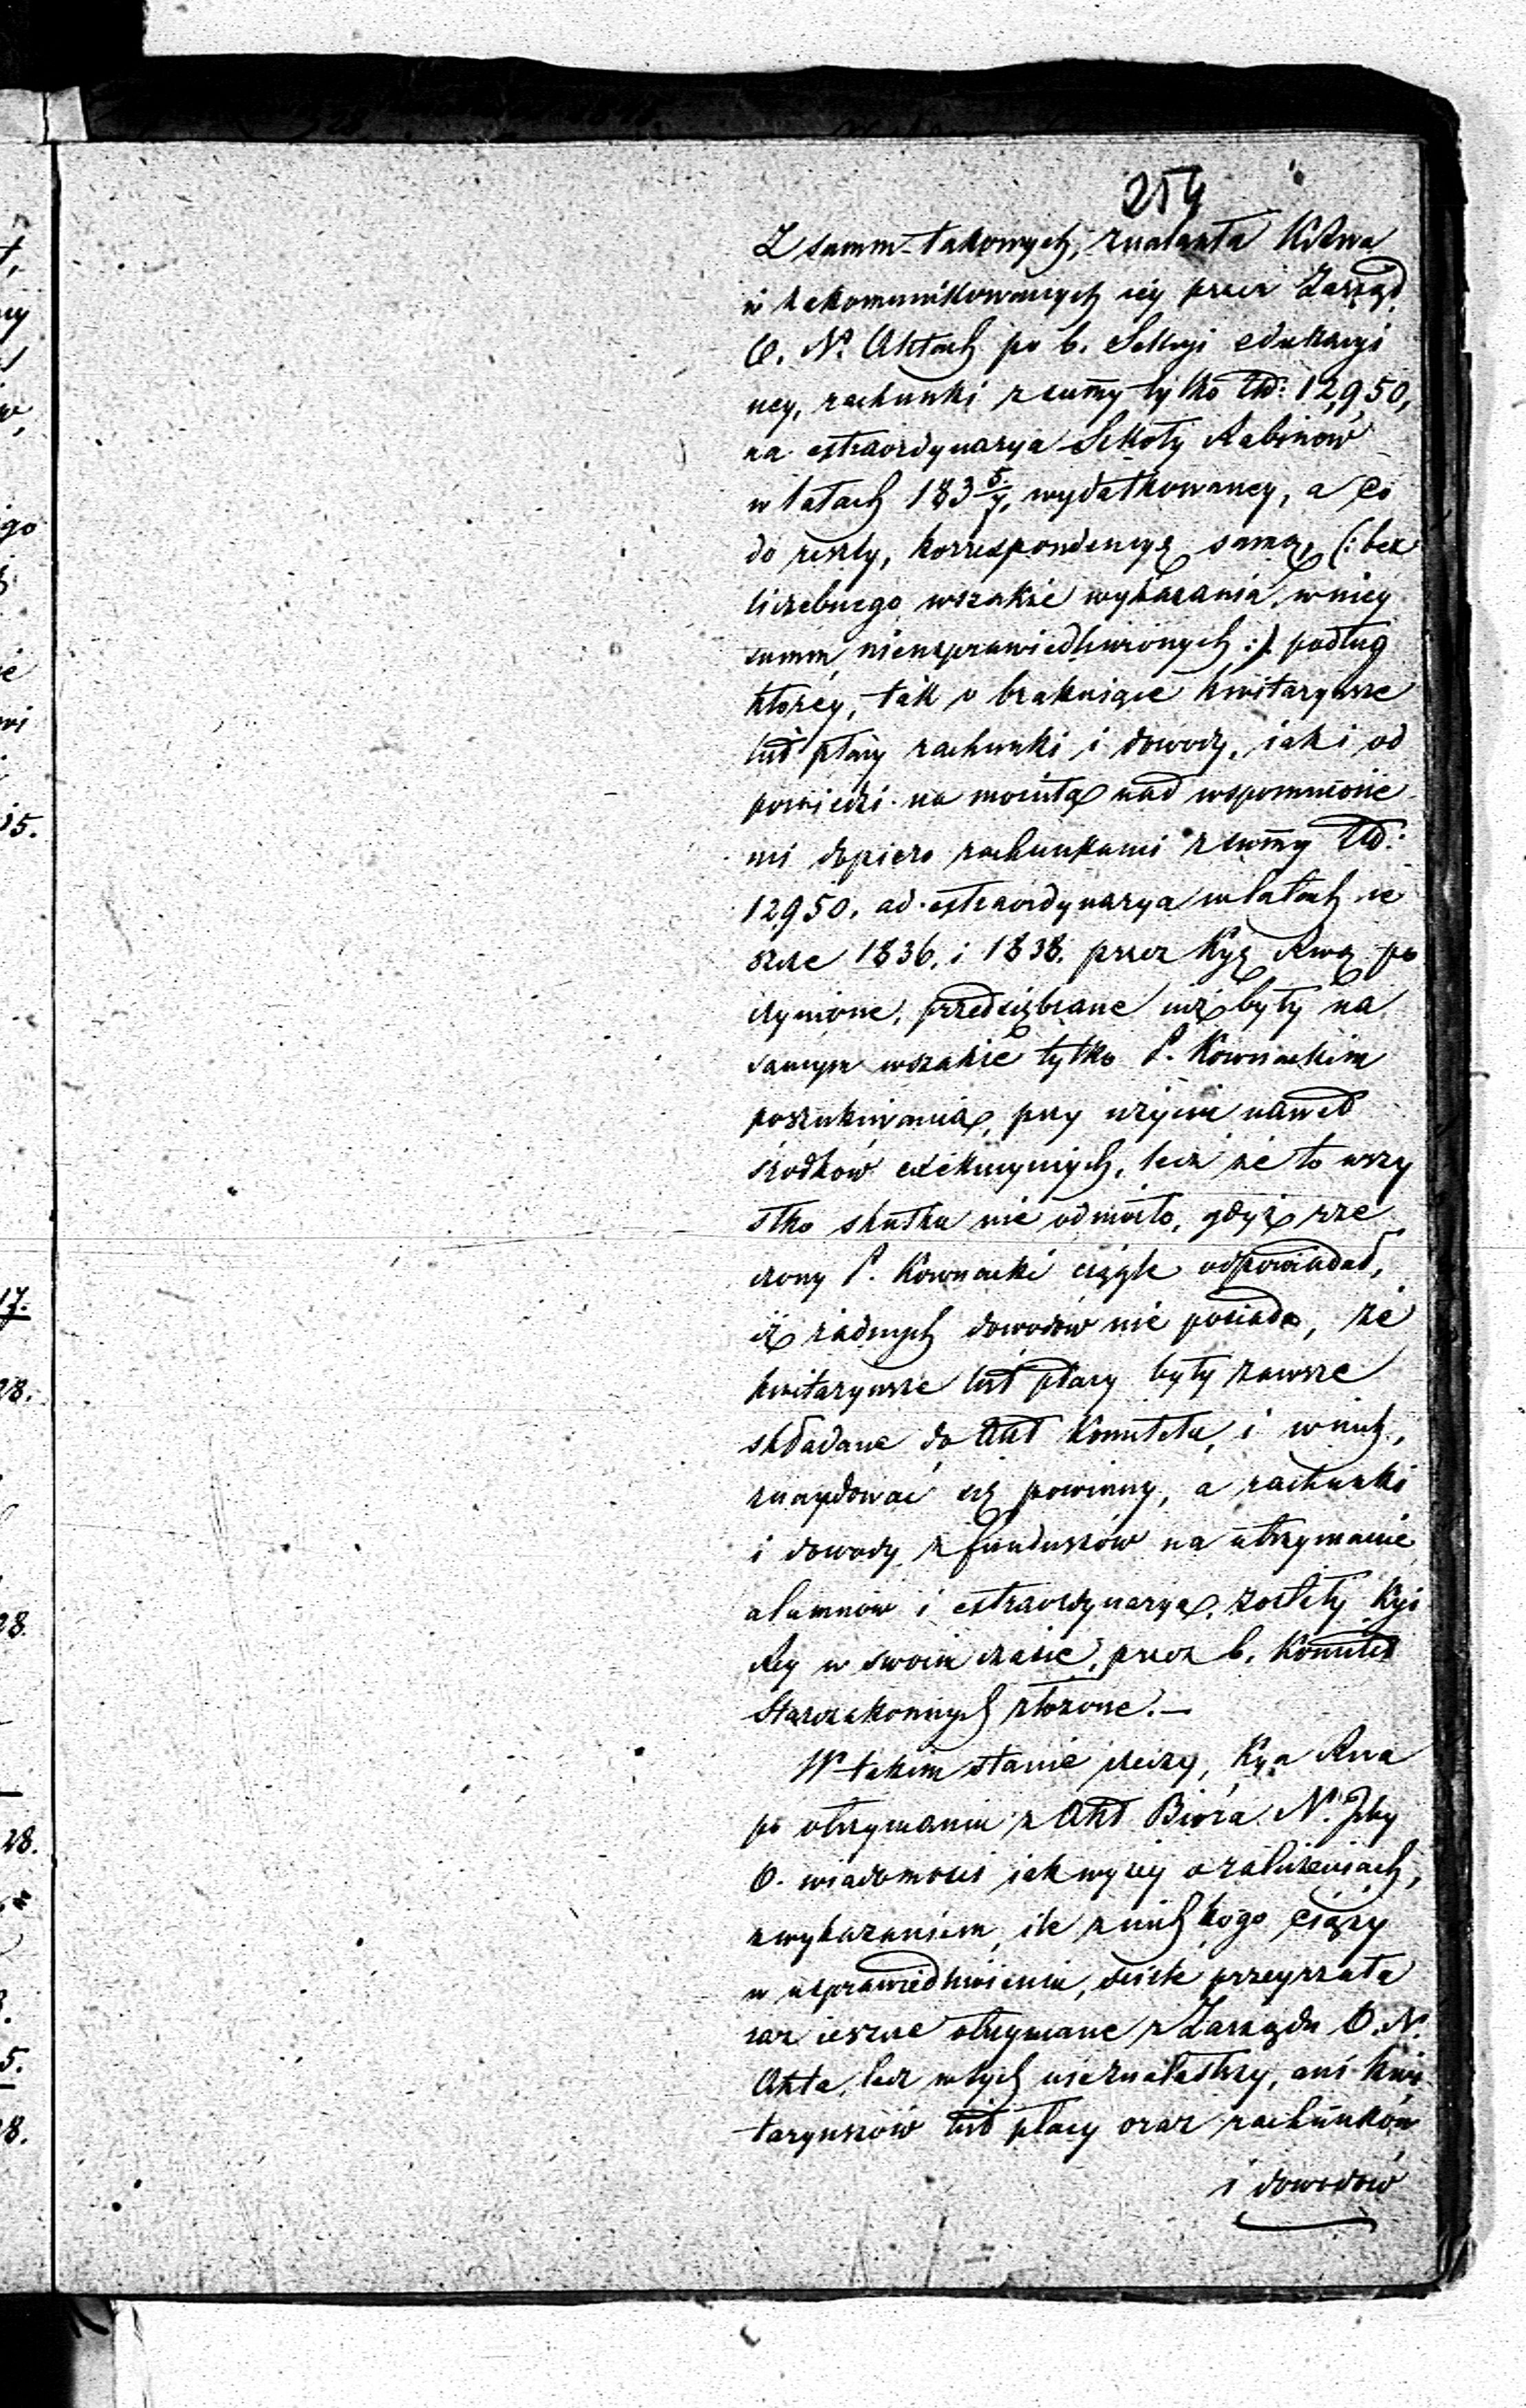 254
Z summ takowych, znalazła KRwa
w zakomunikowanych iey przez Zarząd
O. N. Aktach po b. Sekcyi edukacyi
ney, rachunki z summy tylko Złd: 12,950,
na extraordynarya Szkoły Rabinów
w latach 183 5/7, wydatkowaney, a co
do reszty, korrespondencyą samą, (: bez
liczebnego wszakże wykazania w niey
summ nieusprawiedliwionych :) podług
którey, tak o brakuiące kwitaryusze
list płacy rachunki i dowody, iak i od
powiedzi na monita nad wspomnione
mi dopiero rachunkami z summy Złd:
12950. ad extraordynarya w latach ie
szcze 1836. i 1838. przez Kyą Rwą po
czynione, przedsiębrane iuż były na
samym wszakże tylko P. Kownackim
poszukiwania, przy użyciu nawet
środków exekucyinych, lecz że to wszy
stko skutku nie odniosło, gdyż rze
czony P. Kownacki ciągle odpowiadał,
iż żadnych dowodów nie posiada, że
kwitaryusze list płacy były zawsze
składane do Akt Komitetu, i w nich,
znaydować się powinny, a rachunki
i dowody z funduszów na utrzymanie
alumnów i extraordynarya, zostały Kyi
Rey w swoim czasie, przez b. Komitet
Starozakonnych złożone.—
W takim stanie rzeczy, Kya Rwa
po otrzymaniu z Akt Bióra N. Izby
O. wiadomości iak wyżey o zaliczeniach,
z wykazaniem, ile z nich kogo ciąży
w usprawiedliwieniu, ściśle przeyrzała
raz ieszcze otrzymane z Zarządu O. N.
Akta, lecz w tych nie znalazłszy, ani kwi
taryuszów list płacy oraz rachunków
i dowodów